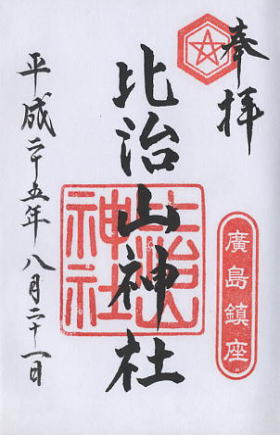 奉拝
廣島鎮座
比治山神社
比治山神社
平成二十五年八月二十一日